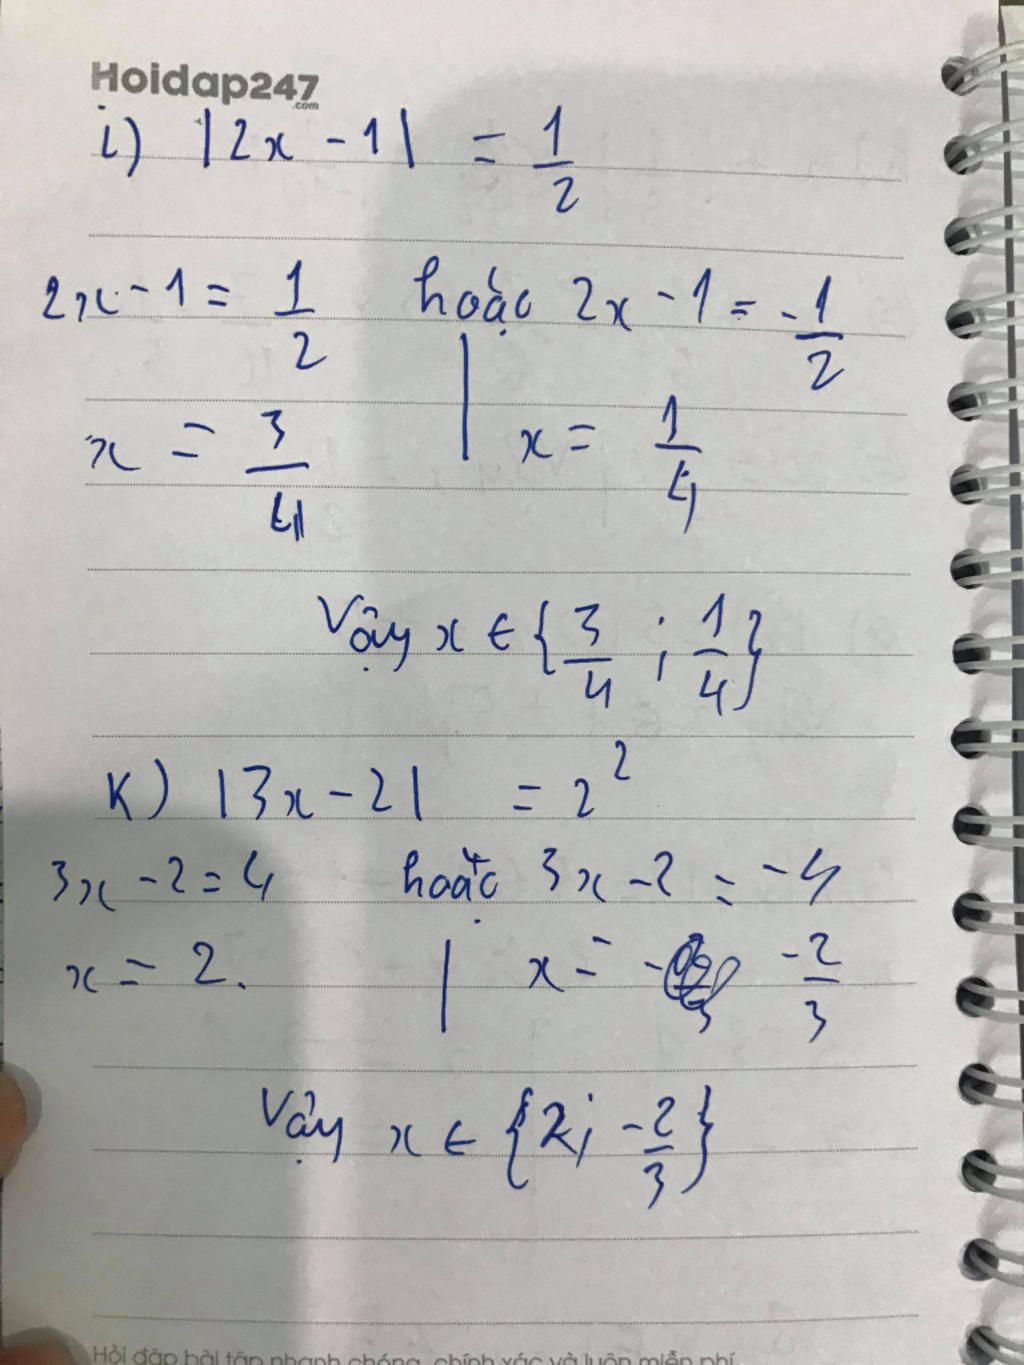 Hoidap247
.com
i) |2x - 1| = 1/2
2x - 1 = 1/2 hoặc 2x - 1 = -1/2
x = 3/4 | x = 1/4
Vậy x ∈ {3/4 ; 1/4}
K) |3x - 2| = 2²
3x - 2 = 4 hoặc 3x - 2 = -4
x = 2. | x = -2/3
Vậy x ∈ {2; -2/3}
Hỏi đáp bài tập nhanh chóng, chính xác và luôn miễn phí